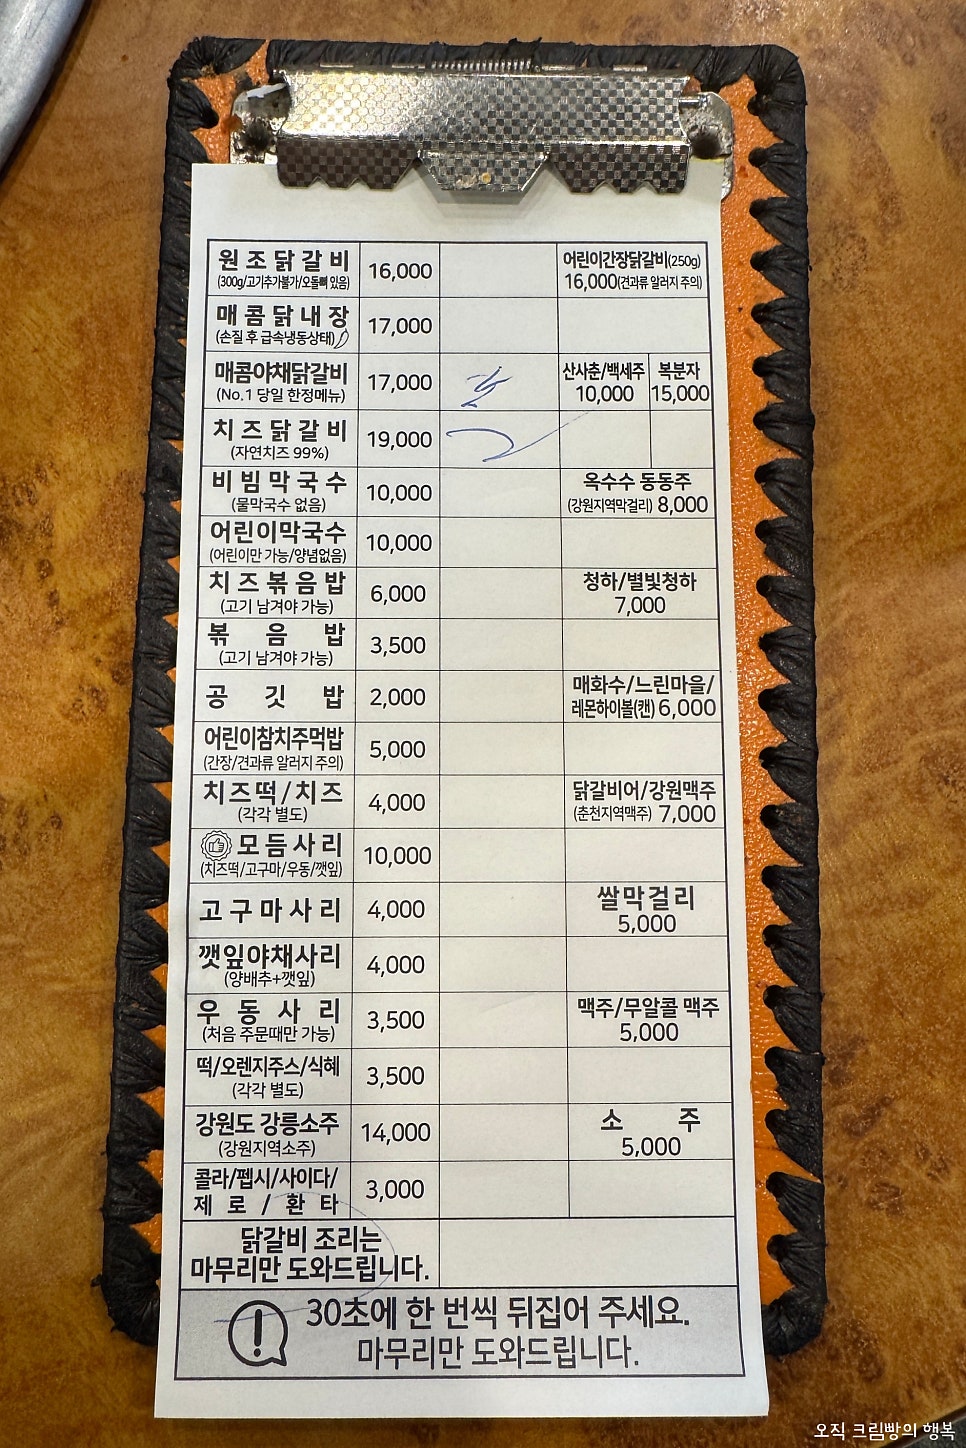 원조닭갈비 16,000 어린이간장닭갈비(250g)
(300g/고기추가불가/오돌뼈 있음) 16,000(견과류 알러지 주의)
매콤닭내장 17,000
(손질 후 급속냉동상태)
매콤야채닭갈비 17,000 산사춘/백세주 복분자
(No.1 당일 한정메뉴) 10,000 15,000
치즈닭갈비 19,000 2
(자연치즈 99%)
비빔막국수 10,000 옥수수 동동주
(물막국수 없음) (강원지역막걸리) 8,000
어린이막국수 10,000
(어린이만 가능/양념없음)
치즈볶음밥 6,000 청하/별빛청하
(고기 남겨야 가능) 7,000
볶음밥 3,500
(고기 남겨야 가능)
공깃밥 2,000 매화수/느린마을/
레몬하이볼(캔) 6,000
어린이참치주먹밥 5,000
(간장/견과류 알러지 주의)
치즈떡/치즈 4,000 닭갈비어/강원맥주
(각각 별도) (춘천지역맥주) 7,000
모듬사리 10,000
(치즈떡/고구마/우동/깻잎)
고구마사리 4,000 쌀막걸리
5,000
깻잎야채사리 4,000
(양배추+깻잎)
우동사리 3,500 맥주/무알콜 맥주
(처음 주문때만 가능) 5,000
떡/오렌지주스/식혜 3,500
(각각 별도)
강원도 강릉소주 14,000 소주
(강원지역소주) 5,000
콜라/펩시/사이다/ 3,000
제로/환타
닭갈비 조리는
마무리만 도와드립니다.
30초에 한 번씩 뒤집어 주세요.
마무리만 도와드립니다.
오직 크림빵의 행복